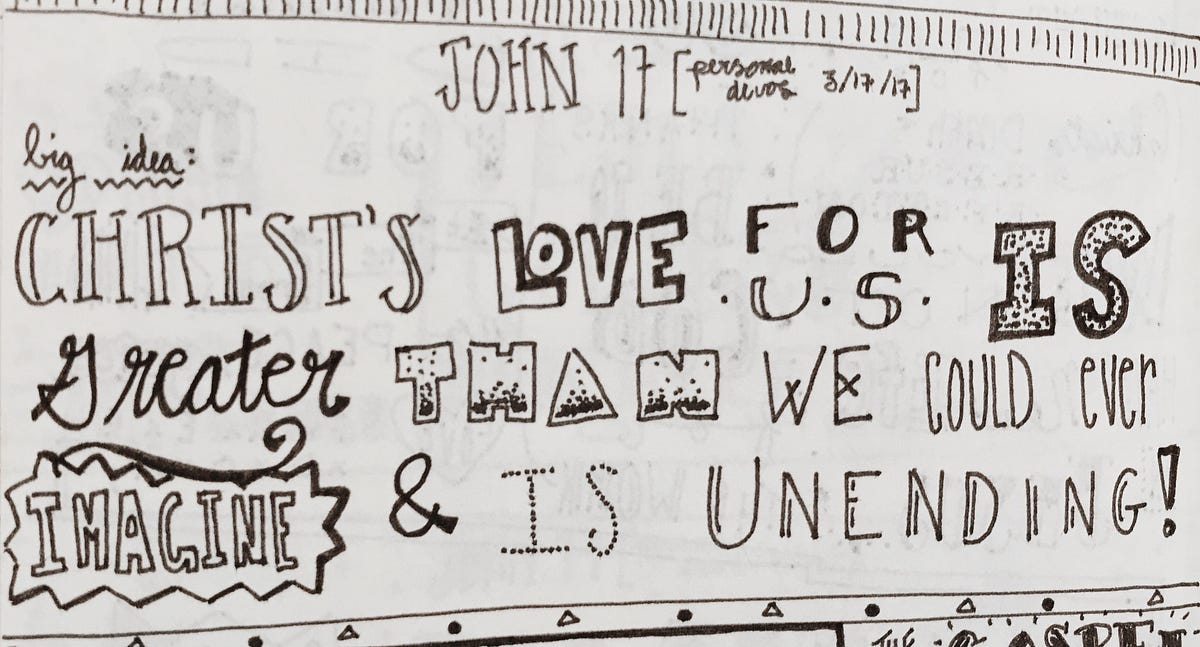 JOHN 17 [personal devos 3/17/17]
big idea:
CHRIST'S LOVE FOR .U.S. IS
Greater THAN WE COULD ever
IMAGINE & IS UNENDING!
THE GOSPEL